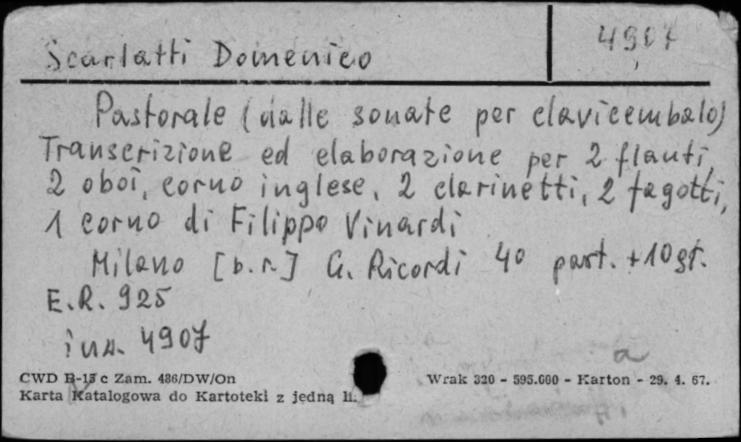 Scarlatti Domenico
4907
Pastorale (dalle sonate per clavicembalo)
Transcrizione ed elaborazione per 2 flauti,
2 oboi, corno inglese, 2 clarinetti, 2 fagotti,
1 corno di Filippo Vinardi
Milano [b.r.] G. Ricordi 4° part. + 10 gł.
E.R. 925
inw. 4907
a
CWD B-15 c Zam. 486/DW/On
Wrak 320 - 595.000 - Karton - 29. 4. 67.
Karta Katalogowa do Kartoteki z jedną li.